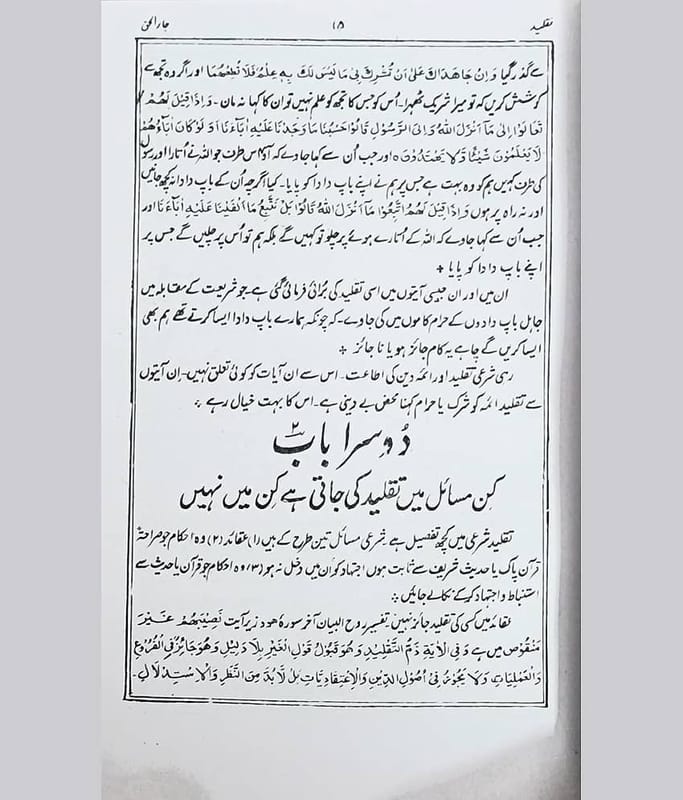 تقلید ۱۵ جاء الحق
سے گذر گیا وَاِنْ جَاهَدَاكَ عَلٰى اَنْ تُشْرِكَ بِىْ مَا لَيْسَ لَكَ بِهٖ عِلْمٌ فَلَا تُطِعْهُمَا اور اگر وہ تجھ سے
کوشش کریں کہ تو میرا شریک ٹھہرا۔ اُس کو جس کا تجھ کو علم نہیں تو ان کا کہا نہ مان۔ وَاِذَا قِيْلَ لَهُمْ
تَعَالَوْا اِلٰى مَآ اَنْزَلَ اللّٰهُ وَاِلَى الرَّسُوْلِ قَالُوْا حَسْبُنَا مَا وَجَدْنَا عَلَيْهِ اٰبَآءَنَا اَوَ لَوْ كَانَ اٰبَاؤُهُمْ
لَا يَعْلَمُوْنَ شَيْئًا وَّلَا يَهْتَدُوْنَ ہ اور جب اُن سے کہا جاوے کہ آؤ اس طرف جو اللہ نے اُتارا اور رسول
کی طرف کہیں ہم کو وہ بہت ہے جس پر ہم نے اپنے باپ دادا کو پایا۔ کیا اگرچہ اُن کے باپ دادا نہ کچھ جانیں
اور نہ راہ پر ہوں وَاِذَا قِيْلَ لَهُمُ اتَّبِعُوْا مَآ اَنْزَلَ اللّٰهُ قَالُوْا بَلْ نَتَّبِعُ مَآ اَلْفَيْنَا عَلَيْهِ اٰبَآءَنَا اور
جب اُن سے کہا جاوے کہ اللہ کے اُتارے ہوئے پر چلو تو کہیں گے بلکہ ہم تو اُس پر چلیں گے جس پر
اپنے باپ دادا کو پایا +
ان میں اور ان جیسی آیتوں میں اسی تقلید کی بُرائی فرمائی گئی ہے۔ جو شریعت کے مقابلہ میں
جاہل باپ دادوں کے حرام کاموں میں کی جاوے۔ کہ چونکہ ہمارے باپ دادا ایسا کرتے تھے ہم بھی
ایسا کریں گے چاہے یہ کام جائز ہو یا نا جائز +
رہی شرعی تقلید اور ائمہ دین کی اطاعت۔ اس سے ان آیات کو کوئی تعلق نہیں۔ اِن آیتوں
سے تقلید ائمہ کو شرک یا حرام کہنا محض بے دینی ہے۔ اس کا بہت خیال رہے +
دُوسرا باب ۲
کِن مسائل میں تقلید کی جاتی ہے کِن میں نہیں
تقلید شرعی میں کچھ تفصیل ہے شرعی مسائل تین طرح کے ہیں (۱) عقائد (۲) وہ احکام جو صراحۃً
قرآن پاک یا حدیث شریف سے ثابت ہوں اجتہاد کو اُن میں دخل نہ ہو (۳) وہ احکام جو قرآن یا حدیث سے
استنباط و اجتہاد کر کے نکالے جائیں :
عقائد میں کسی کی تقلید جائز نہیں تفسیر روح البیان آخر سورۂ ھود زیر آیت نَصِيْبَهُمْ غَيْرَ
مَنْقُوْصٍ میں ہے وَفِى الْاٰيَةِ ذَمُّ التَّقْلِيْدِ وَهُوَ قَبُوْلُ قَوْلِ الْغَيْرِ بِلَا دَلِيْلٍ وَهُوَ جَائِزٌ فِى الْفُرُوْعِ
وَالْعَمَلِيَاتِ وَلَا يَجُوْزُ فِىْ اُصُوْلِ الدِّيْنِ وَالْاِعْتِقَادِيَاتِ بَلْ لَّا بُدَّ مِنَ النَّظْرِ وَالْاِسْتِدْلَالِ۔